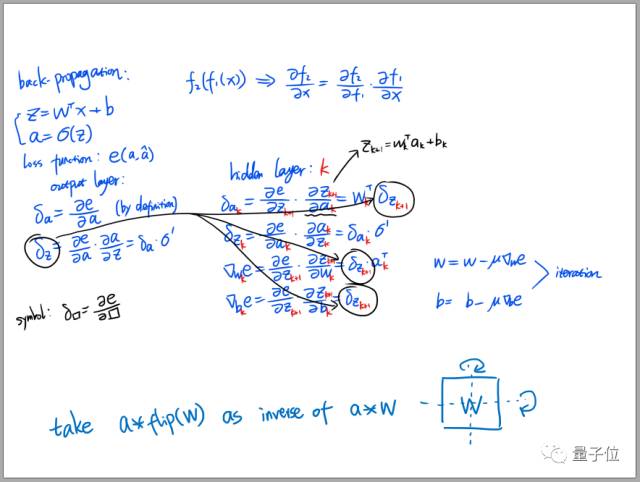 back-propagation:
f₂(f₁(x)) ⟹ ∂f₂/∂x = ∂f₂/∂f₁ · ∂f₁/∂x
{ z = wᵀx + b
a = σ(z)
loss function: e(a, â)
output layer:
δₐ = ∂e/∂a (by definition)
δ_z = ∂e/∂a · ∂a/∂z = δₐ · σ'
symbol: δ□ = ∂e/∂□
z_{k+1} = w_kᵀ a_k + b_k
hidden layer: k
δ_{a_k} = ∂e/∂z_{k+1} · ∂z_{k+1}/∂a_k = w_kᵀ δ_{z_{k+1}}
δ_{z_k} = ∂e/∂a_k · ∂a_k/∂z_k = δ_{a_k} · σ'
∇_{w_k} e = ∂e/∂z_{k+1} · ∂z_{k+1}/∂w_k = δ_{z_{k+1}} · a_kᵀ
∇_{b_k} e = ∂e/∂z_{k+1} ∂z_{k+1}/∂b_k = δ_{z_{k+1}}
w = w - μ∇_w e
b = b - μ∇_b e
iteration
take a*flip(w) as inverse of a*w
W
量子位